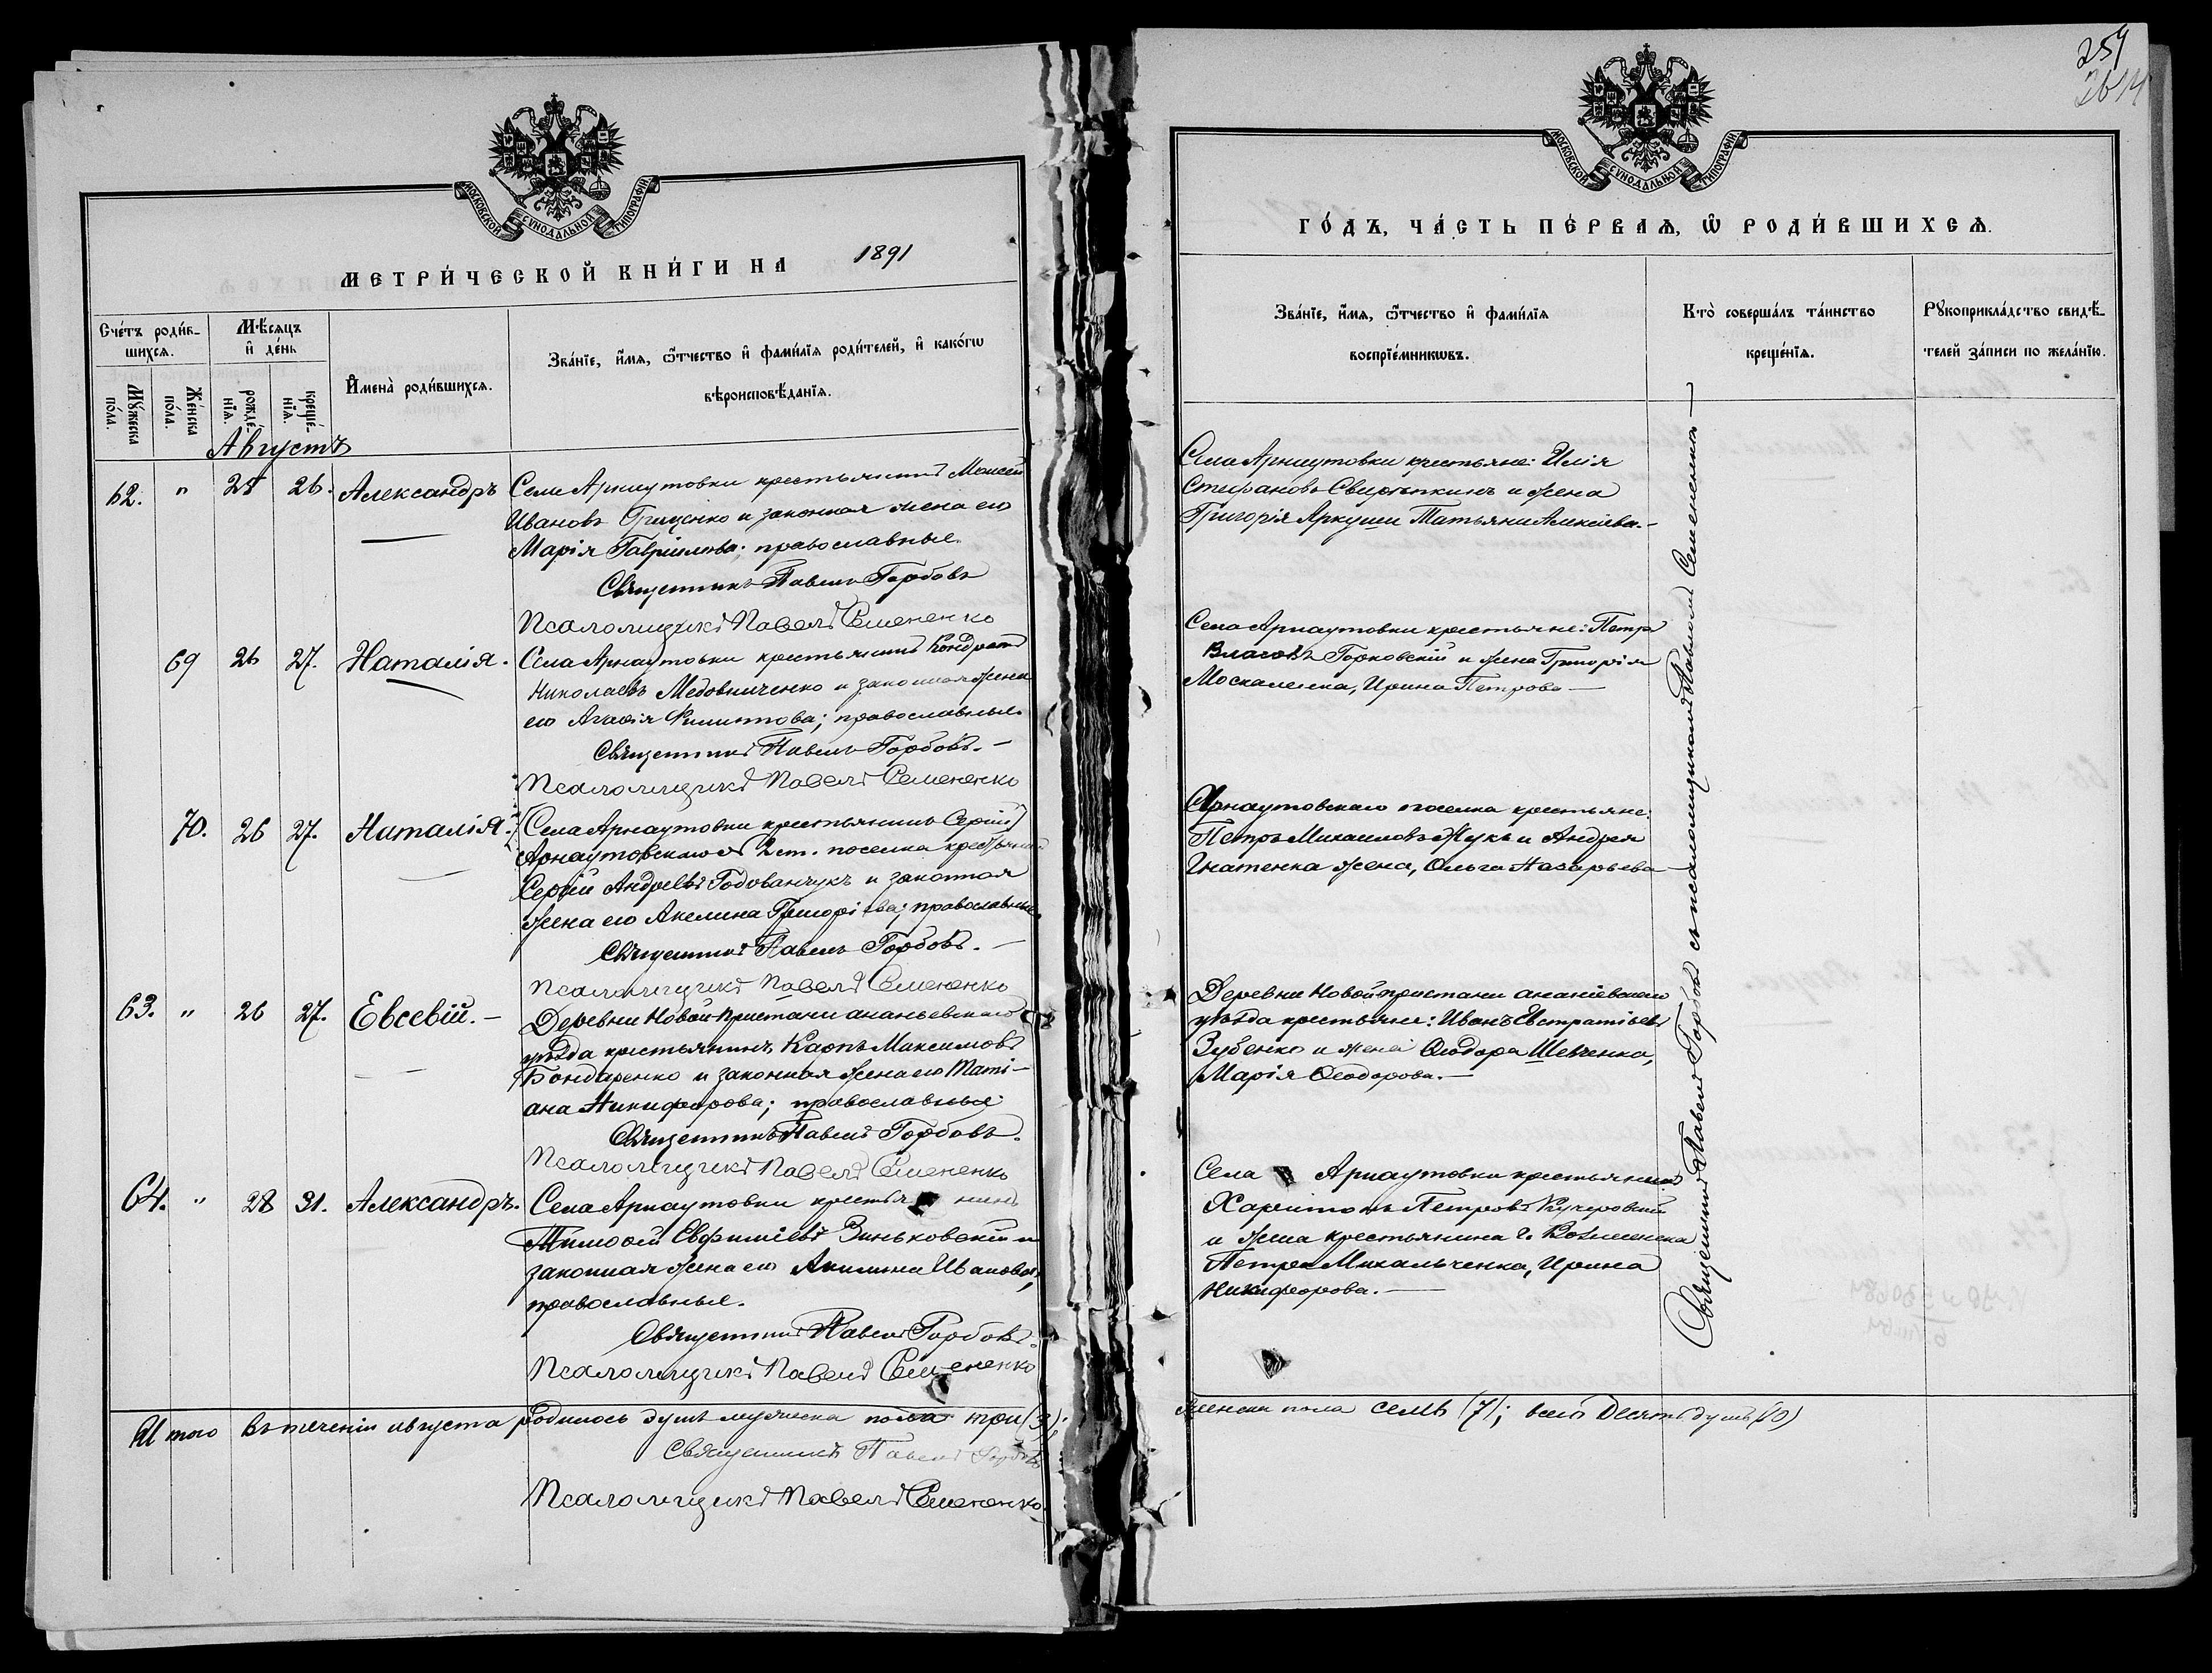 МОСКОВСКОЙ СѴНОДАЛЬНОЙ ТИПОГРАФІИ.
МЕТРИ́ЧЕСКОЙ КНИ́ГИ НА 1891
Сче́тъ роди́в-
шихся.
Мѣ́сяцъ
и҆ де́нь
Мꙋ́жеска по́ла.
Же́нска по́ла.
рожде́-
нїѧ.
креще́-
нїѧ.
И҆мена̀ роди́вшихсѧ.
Зва́нїе, и҆́мѧ, ѻ҆́тчество и҆ фами́лїѧ роди́телей, и҆ како́гѡ
вѣроисповѣ́данїѧ.
Августъ
62. " 25 26. Александръ
Села Арнаутовки крестьянинъ Моисей
Ивановъ Гриценко и законная жена его
Марія Гавріилова; православные.
Священникъ Павелъ Горбовъ
Псаломщикъ Павелъ Семененко
69 26 27. Наталія.
Села Арнаутовки крестьянинъ Кондратъ
Николаевъ Медовниченко и законная жена
его Агафія Филиппова; православные.
Священникъ Павелъ Горбовъ.
Псаломщикъ Павелъ Семененко
70. 26 27. Наталія.
(Села Арнаутовки крестьянинъ Сергій)
Арнаутовскаго 2 ст. поселка крестьянинъ
Сергій Андреевъ Годованчукъ и законная
жена его Акелина Григоріева; православные.
Священникъ Павелъ Горбовъ.
Псаломщикъ Павелъ Семененко
63. " 26 27. Евсевій.
Деревни Новой-Пристани ананьевскаго
уѣзда крестьянинъ Карпъ Максимовъ
Бондаренко и законная жена его Таті-
ана Никифорова; православные.
Священникъ Павелъ Горбовъ.
Псаломщикъ Павелъ Семененко
64. " 28 31. Александръ.
Села Арнаутовки крестьянинъ
Тимоѳей Евфиміевъ Зиньковскій и
законная жена его Акилина Иванова,
православные.
Священникъ Павелъ Горбовъ.
Псаломщикъ Павелъ Семененко
Итого въ теченіи августа родилось душъ мужеска пола три (3);
Священникъ Павелъ Горбовъ
Псаломщикъ Павелъ Семененко.
259
МОСКОВСКОЙ СѴНОДАЛЬНОЙ ТИПОГРАФІИ.
ГО́ДЪ, ЧА́СТЬ ПЕ́РВАѦ, Ѡ҆ РОДИ́ВШИХСѦ.
Зва́нїе, и҆́мѧ, ѻ҆́тчество и҆ фами́лїѧ
воспрїе́мникѡвъ.
Кто̀ соверша́лъ та́инство
креще́нїѧ.
Рꙋкоприкла́дство свидѣ́-
телей за́писи по жела́нїю.
Села Арнаутовки крестьяне: Илія
Стефановъ Свирѣпкинъ и жена
Григорія Аркуши Татьяна Алексѣева.
Села Арнаутовки крестьяне: Петръ
Власовъ Горковскій и жена Григорія
Москаленка, Ирина Петрова
Арнаутовскаго поселка крестьяне:
Петръ Михаиловъ Жукъ и Андрея
Игнатенка жена, Ольга Назарьева
Деревни Новой пристани ананіевскаго
уѣзда крестьяне: Иванъ Евстратіевъ
Зубенко и жена Ѳеодора Шевченка,
Марія Ѳеодорова.
Села Арнаутовки крестьянинъ
Харитонъ Петровъ Кучеровскій
и жена крестьянина г. Вознесенска
Петра Михальченка, Ирина
Никифорова.
Священникъ Павелъ Горбовъ съ псаломщикомъ Павломъ Семененкомъ
женска пола семь (7); всего десять душъ (10)